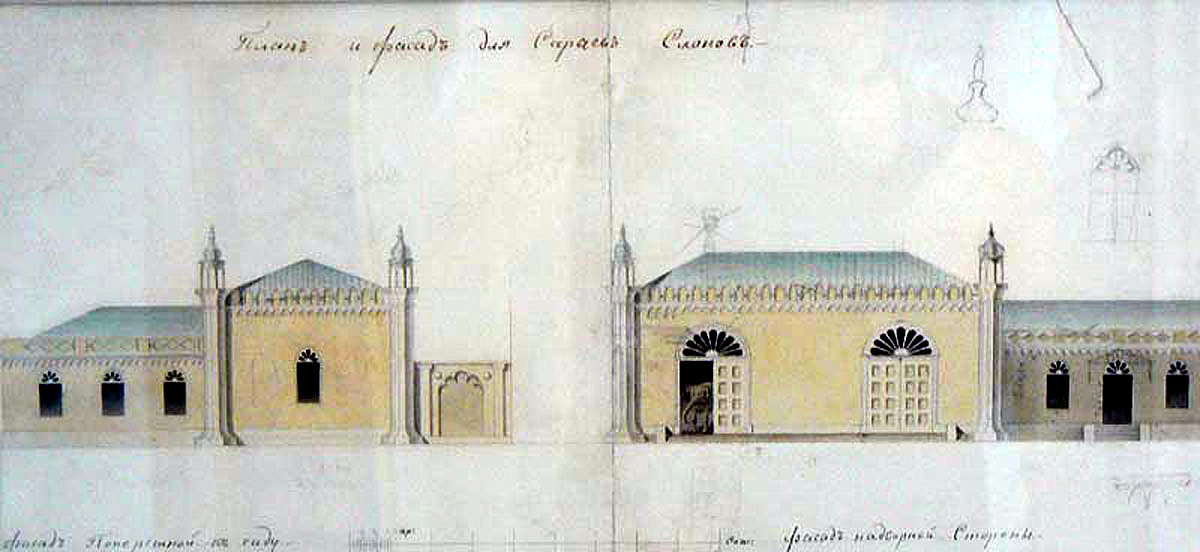 Планъ и фасадъ для Сараевъ Слоновъ.
фасадъ Поперешной къ саду.
фасадъ надворной Стороны.